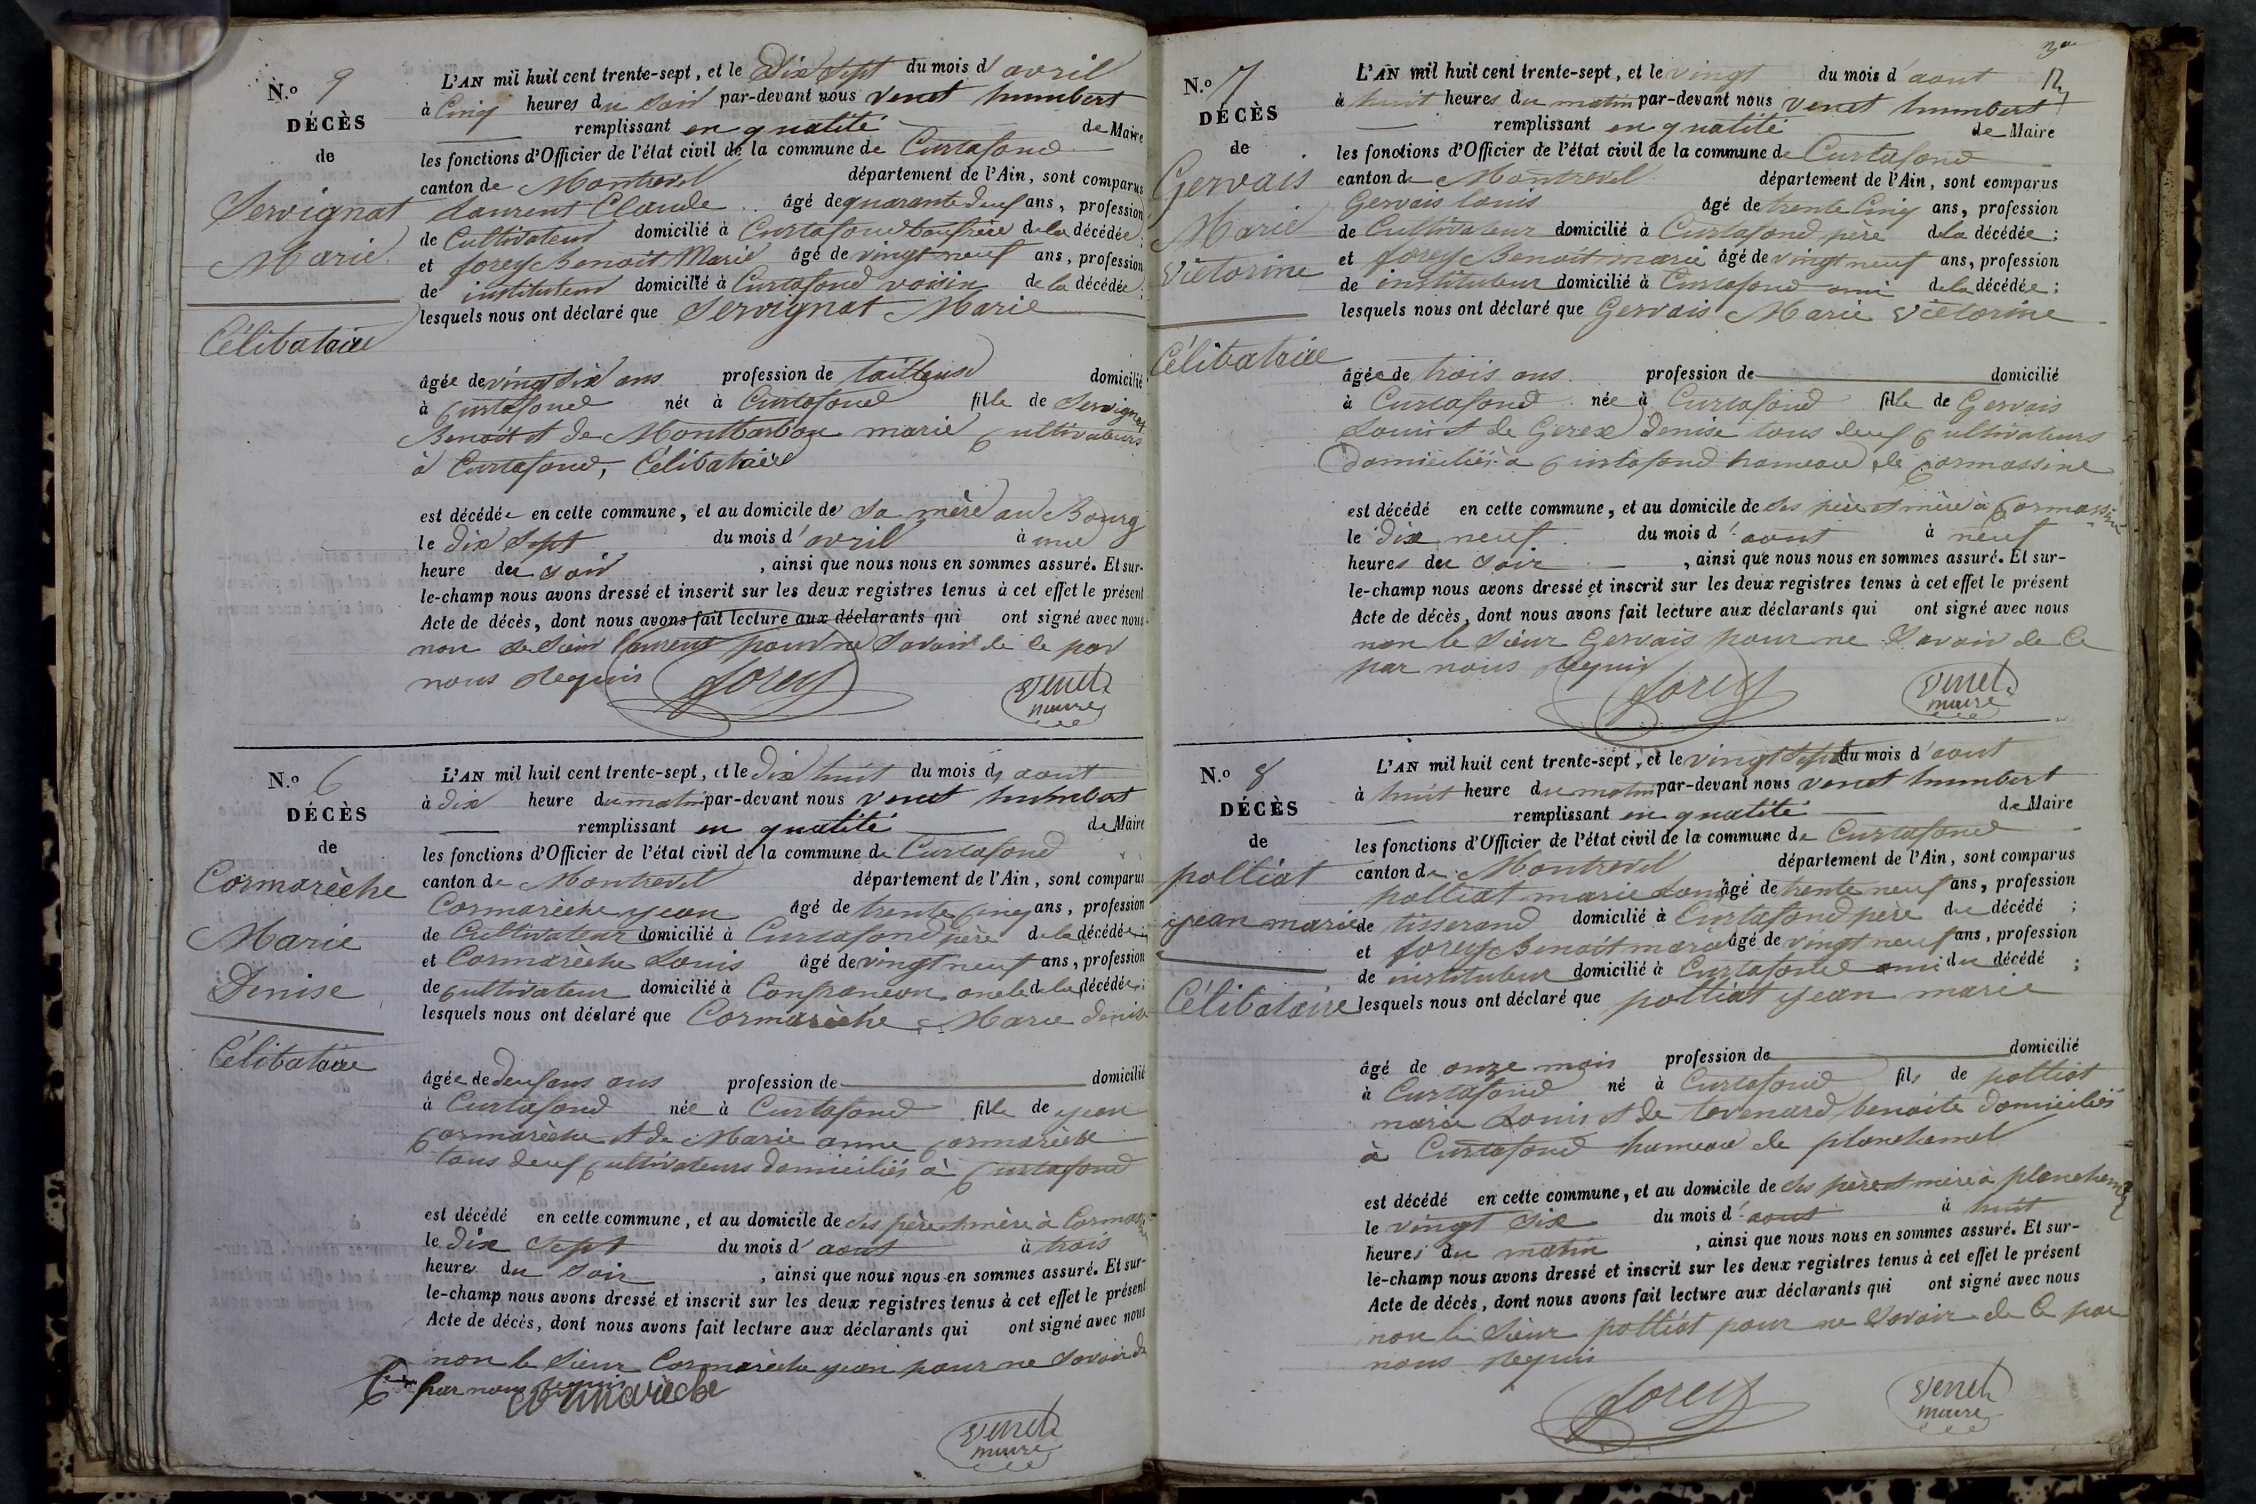 N.º 9
DÉCÈS
de
Servignat
Marie
Célibataire
L'AN mil huit cent trente-sept, et le Dix sept du mois d'avril
à Cinq heures du soir par-devant nous venet humbert
remplissant en qualité de Maire
les fonctions d'Officier de l'état civil de la commune de Curtafond
canton de Montrevel département de l'Ain, sont comparus
Laurent Claude âgé de quarante deux ans, profession
de Cultivateur domicilié à Curtafond beaufrère de la décédée;
et forey Benoit Marie âgé de vingt neuf ans, profession
de instituteur domicilié à Curtafond voisin de la décédée;
lesquels nous ont déclaré que Servignat Marie
âgée de vingt six ans profession de tailleuse domicilié
à Curtafond née à Curtafond fille de Servignat
Benoit et de Montbarbon marie Cultivateurs
à Curtafond, Célibataire
est décédée en cette commune, et au domicile de sa mère au Bourg
le dix sept du mois d'avril à une
heure du soir, ainsi que nous nous en sommes assuré. Et sur-
le-champ nous avons dressé et inscrit sur les deux registres tenus à cet effet le présent
Acte de décès, dont nous avons fait lecture aux déclarants qui ont signé avec nous
non le sieur Laurent pour ne savoir de ce par
nous requis forey venet
maire
N.º 6
DÉCÈS
de
Cormarèche
Marie
Denise
Célibataire
L'AN mil huit cent trente-sept, et le dix huit du mois d'aout
à dix heure du matin par-devant nous venet humbert
remplissant en qualité de Maire
les fonctions d'Officier de l'état civil de la commune de Curtafond
canton de Montrevel département de l'Ain, sont comparus
Cormarèche jean âgé de trente cinq ans, profession
de Cultivateur domicilié à Curtafond père de la décédée;
et Cormarèche Louis âgé de vingt neuf ans, profession
de cultivateur domicilié à Confrancon oncle de la décédée;
lesquels nous ont déclaré que Cormarèche Marie denise
âgée de deux ans ans profession de domicilié
à Curtafond née à Curtafond fille de jean
Cormarèche et de Marie anne Cormarèche
tous deux Cultivateurs domiciliés à Curtafond
est décédé en cette commune, et au domicile de ses père et mère à Cormassine
le dix sept du mois d'aout à trois
heures du soir, ainsi que nous nous en sommes assuré. Et sur-
le-champ nous avons dressé et inscrit sur les deux registres tenus à cet effet le présent
Acte de décès, dont nous avons fait lecture aux déclarants qui ont signé avec nous
non le sieur Cormarèche jean pour ne savoir de
Ce par nous requis Cormarèche
venet
maire
N.º 7
DÉCÈS
de
Gervais
Marie
Victorine
Célibataire
L'AN mil huit cent trente-sept, et le vingt du mois d'aout
à huit heures du matin par-devant nous venet humbert
remplissant en qualité de Maire
les fonctions d'Officier de l'état civil de la commune de Curtafond
canton de Montrevel département de l'Ain, sont comparus
Gervais louis âgé de trente Cinq ans, profession
de Cultivateur domicilié à Curtafond père de la décédée;
et forey Benoit marie âgé de vingt neuf ans, profession
de instituteur domicilié à Curtafond ami de la décédée;
lesquels nous ont déclaré que Gervais Marie Victorine
âgée de trois ans profession de domicilié
à Curtafond née à Curtafond fille de Gervais
Louis et de Gerex denise tous deux Cultivateurs
Domiciliés à Curtafond hameau de Cormassine
est décédé en cette commune, et au domicile de ses père et mère à Cormassine
le dix neuf du mois d'aout à neuf
heures du soir, ainsi que nous nous en sommes assuré. Et sur-
le-champ nous avons dressé et inscrit sur les deux registres tenus à cet effet le présent
Acte de décès, dont nous avons fait lecture aux déclarants qui ont signé avec nous
non le sieur Gervais pour ne savoir de Ce
par nous requis forey venet
maire
N.º 8
DÉCÈS
de
polliat
jean marie
Célibataire
L'AN mil huit cent trente-sept, et le vingt sept du mois d'aout
à huit heure du matin par-devant nous venet humbert
remplissant en qualité de Maire
les fonctions d'Officier de l'état civil de la commune de Curtafond
canton de Montrevel département de l'Ain, sont comparus
polliat marie Louis âgé de trente neuf ans, profession
de tisserand domicilié à Curtafond père du décédé;
et forey Benoit marie âgé de vingt neuf ans, profession
de instituteur domicilié à Curtafond ami du décédé;
lesquels nous ont déclaré que polliat jean marie
âgé de onze mois profession de domicilié
à Curtafond né à Curtafond fils de polliat
marie Louis et de tevenard benoite domiciliés
à Curtafond hameau de planchamel
est décédé en cette commune, et au domicile de ses père et mère à planchamel
le vingt six du mois d'aout à huit
heures du matin, ainsi que nous nous en sommes assuré. Et sur-
le-champ nous avons dressé et inscrit sur les deux registres tenus à cet effet le présent
Acte de décès, dont nous avons fait lecture aux déclarants qui ont signé avec nous
non le sieur polliat pour ne savoir de Ce par
nous requis
forey venet
maire